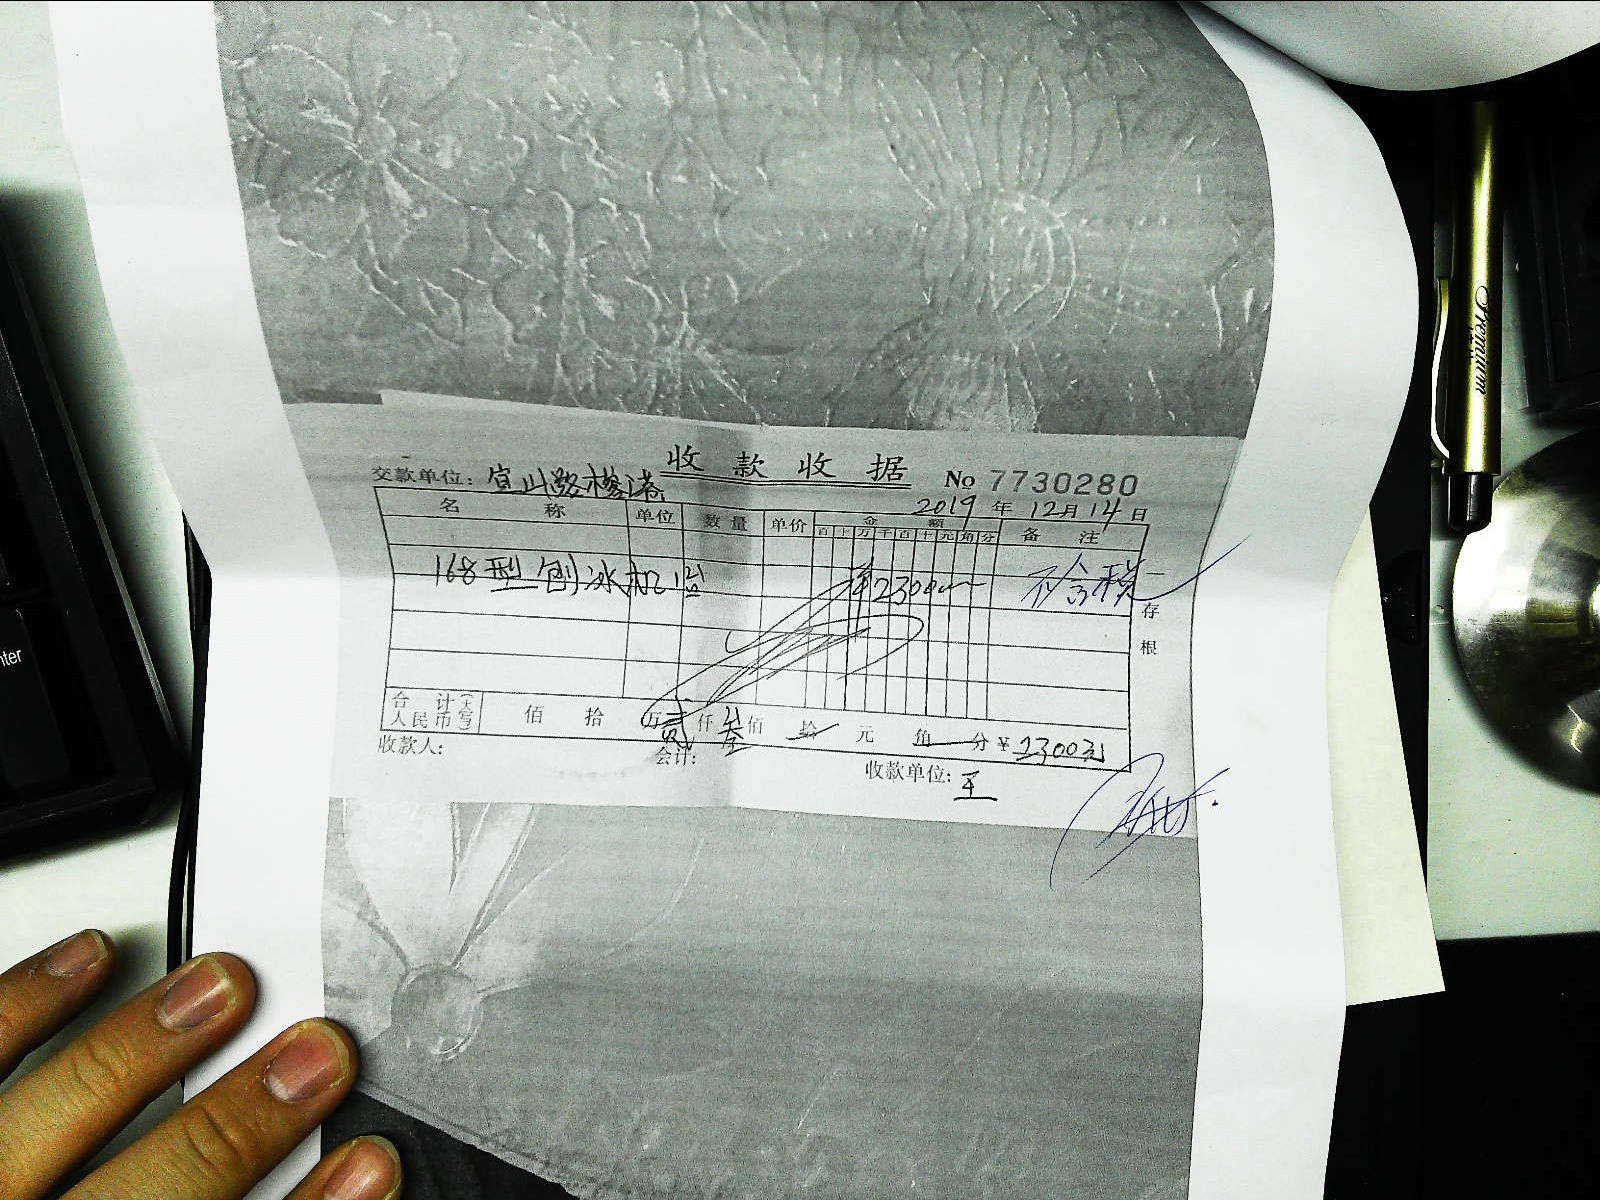 收款收据
No 7730280
交款单位：宜山路
2019 年 12月 14 日
名称 单位 数量 单价 金额 备注
百 十 万 千 百 十 元 角 分
168型刨冰机 1台 ¥2300 不含税
存根
合计人民币(大写) 佰 拾 万 贰 仟 叁 佰 拾 元 角 分 ¥ 2300元
收款人： 会计： 收款单位：王
Premium
nter